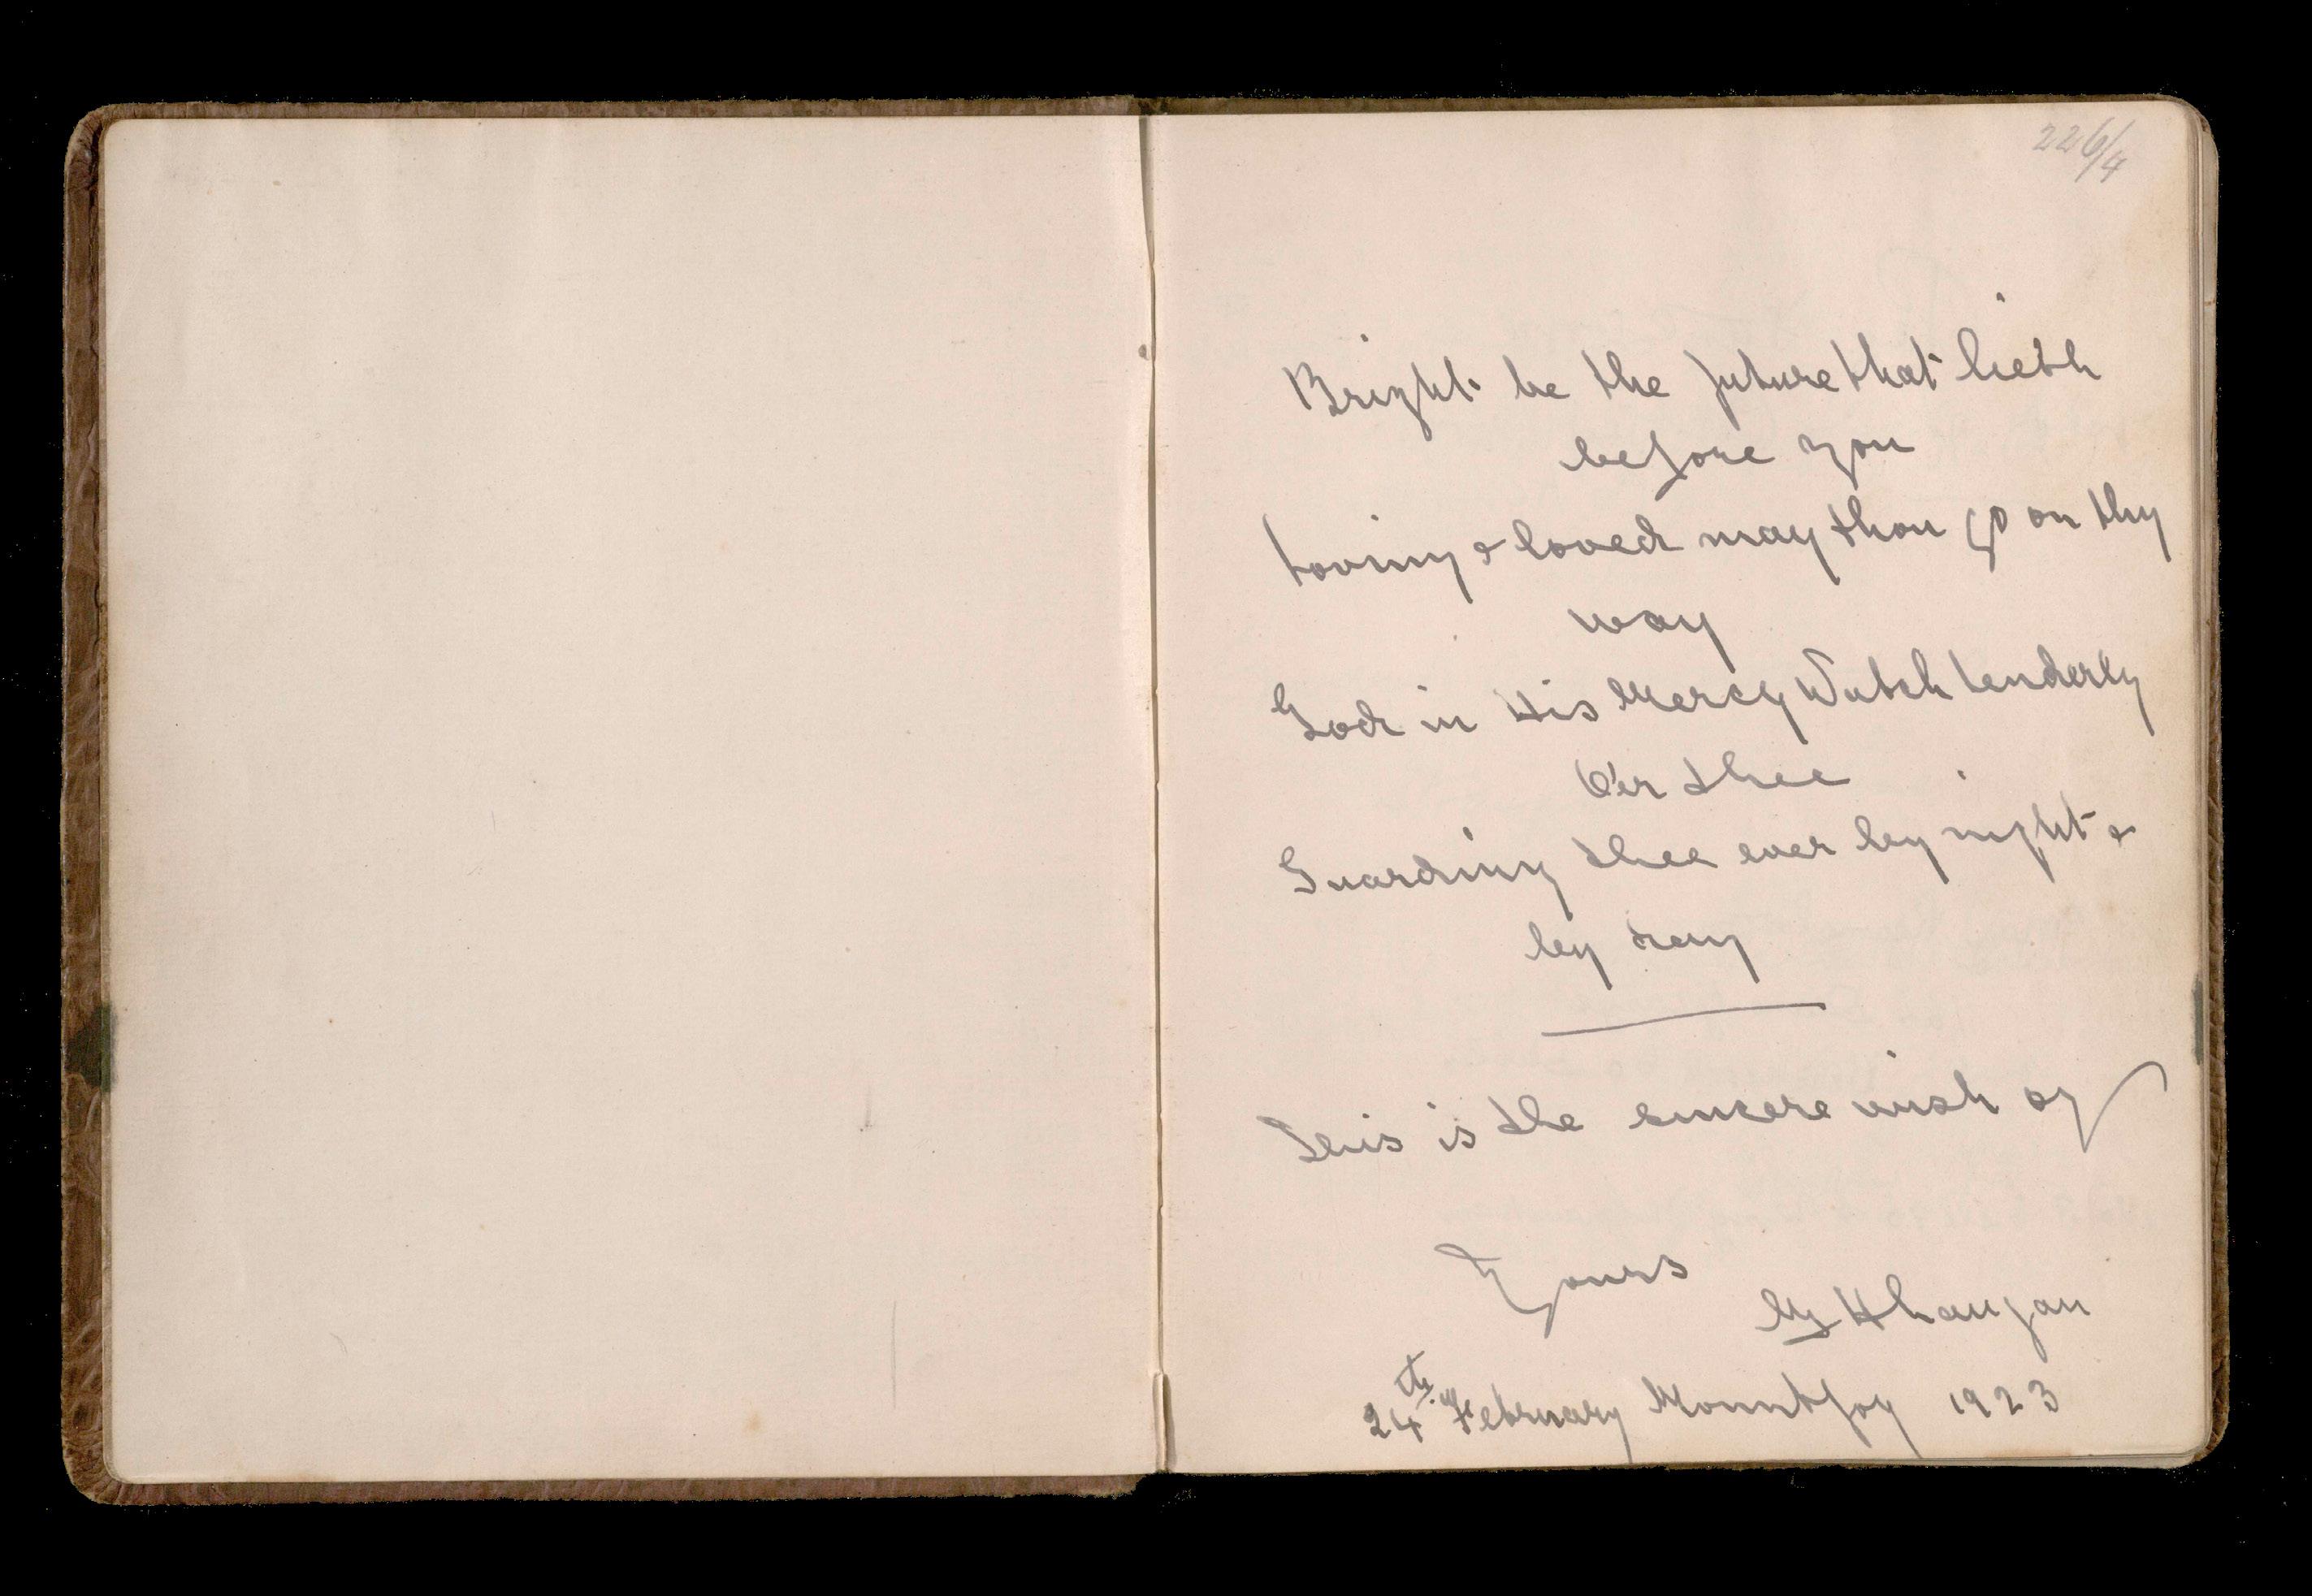 226/4
Bright be the future that lieth
before you
Loving & loved may thou go on thy
way
God in His Mercy Watch tenderly
O'er thee
Guarding thee ever by night &
by day
This is the sincere wish of
Yours
24th February Mountjoy 1923